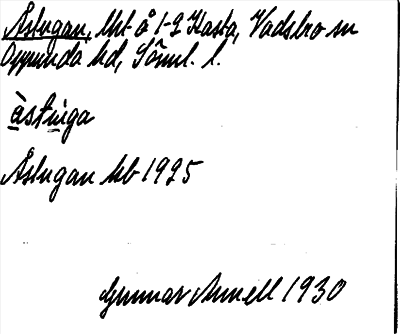 Åstugan, lht å 1-2 Kasta, Vadsbro sn
Oppunda hd, Söml. l.
àstu̠ga
Åstugan kb 1925
Gunnar Annell 1930